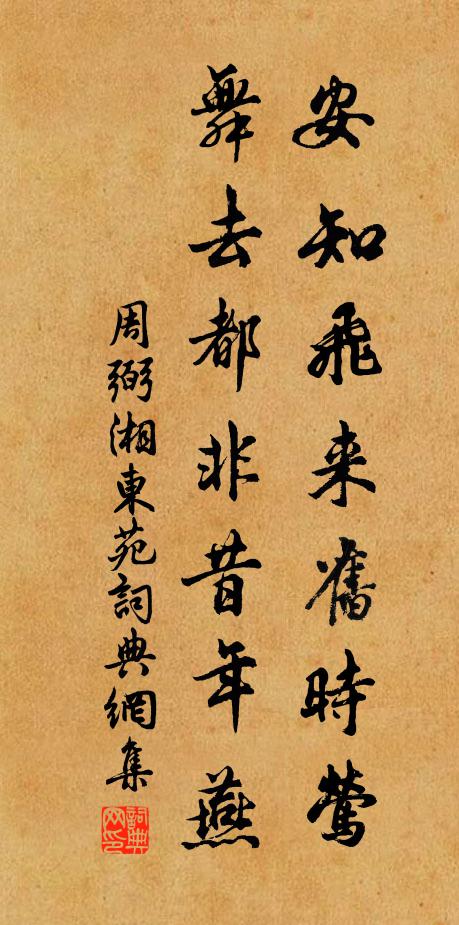 安知飛来舊時鶯
舞去都非昔年燕
周弼湘東苑詞典網集
詞典网印